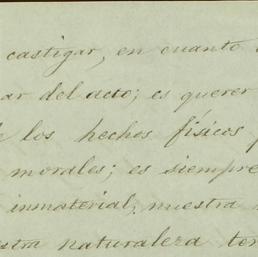 castigar, en cuanto
ar del acto; es querer
los hechos físicos
morales; es siempre
inmaterial; nuestra
stra naturaleza ter